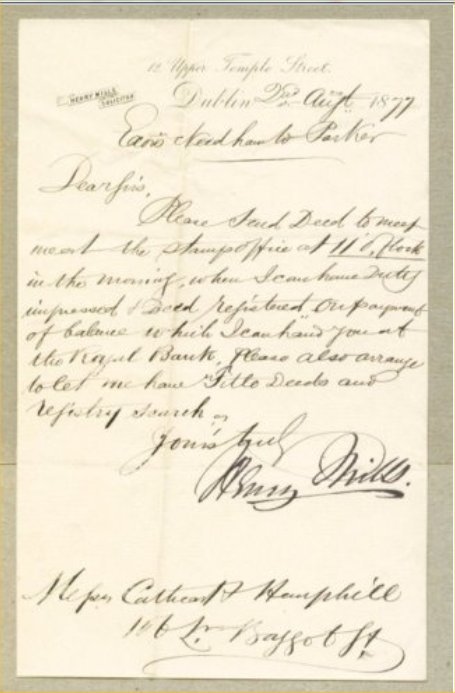 12 Upper Temple Street.
HENRY MILLS
SOLICITOR
Dublin 2nd Augt 1877
Needham to Parker
Dear Sirs,
Please send Deed to meet
me at the stamp office at 11 o'Clock
in the morning, when I can have Duty
impressed & Deed registered, on payment
of balance which I can hand you at
the Royal Bank, please also arrange
to let me have Title Deeds and
registry search
Yours truly
Henry Mills.
Messrs Cathcart & Hemphill
Lr Baggot St.